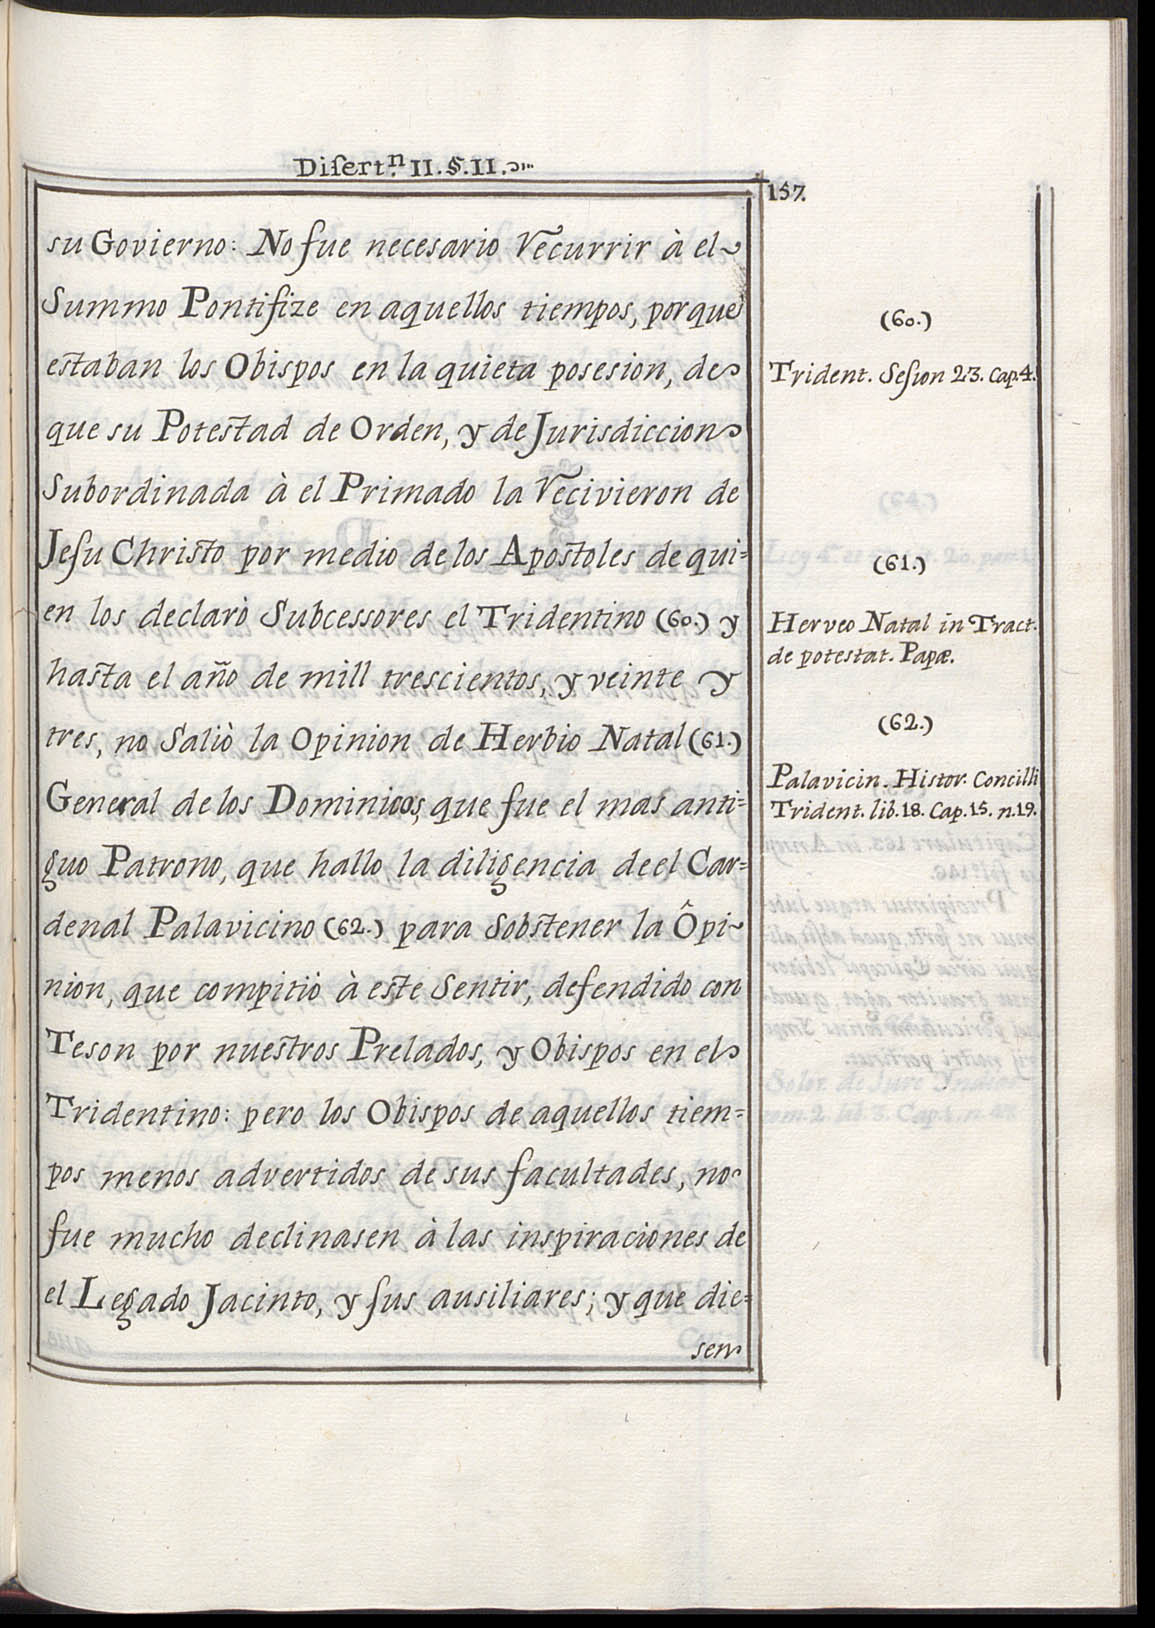 Disertⁿ. II. §. II.
157.
su Govierno: No fue necesario recurrir à el
Summo Pontifize en aquellos tiempos, porque
estaban los Obispos en la quieta posesion, de
que su Potestad de Orden, y de Jurisdiccion
Subordinada à el Primado la recivieron de
Jesu Christo por medio de los Apostoles de qui=
en los declarò Subcessores el Tridentino (60.) y
hasta el año de mill trescientos, y veinte y
tres, no Saliò la Opinion de Herbio Natal (61.)
General de los Dominicos, que fue el mas anti=
guo Patrono, que hallo la diligencia de el Car=
denal Palavicino (62.) para Sobstener la Ôpi~
nion, que compitiò à este Sentir, defendido con
Teson por nuestros Prelados, y Obispos en el
Tridentino: pero los Obispos de aquellos tiem=
pos menos advertidos de sus facultades, no
fue mucho declinasen à las inspiraciones de
el Legado Jacinto, y sus ausiliares; y que die=
sen
(60.)
Trident. Sesion 23. Cap. 4.
(61.)
Herveo Natal in Tract.
de potestat. Papæ.
(62.)
Palavicin. Histor. Concilli
Trident. lib. 18. Cap. 15. n. 19.